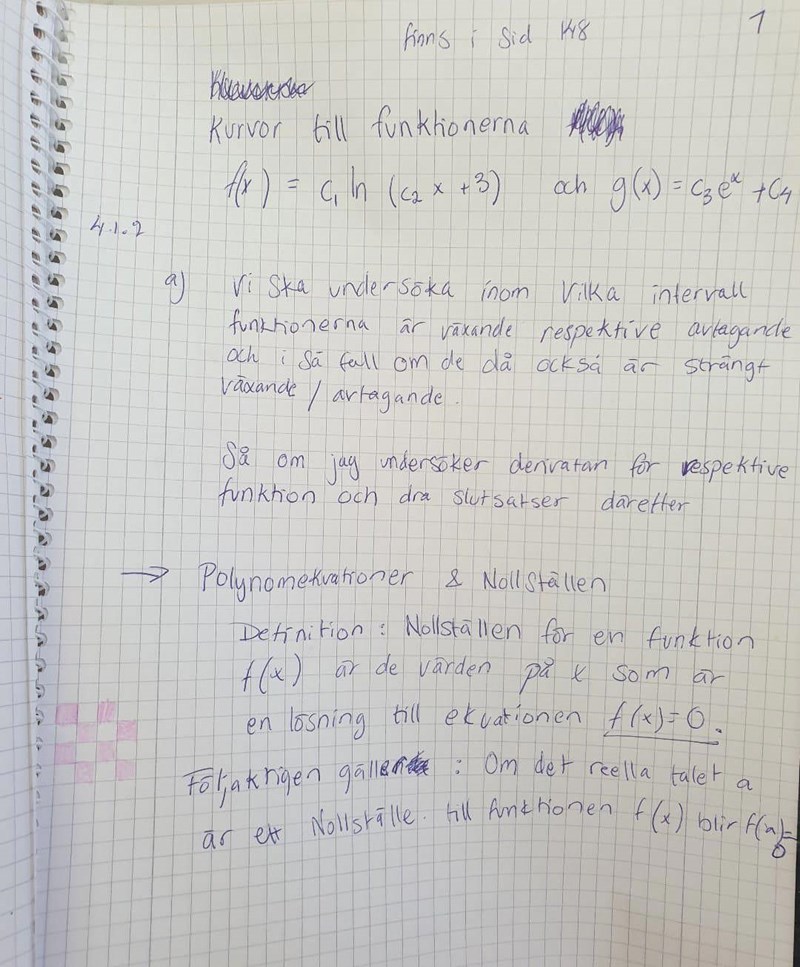 finns i sid 148
1
Kurvor till funktionerna
f(x) = c₁ ln (c₂ x + 3) och g(x) = c₃eˣ + c₄
4.1.2
a) Vi ska undersöka inom vilka intervall
funktionerna är växande respektive avtagande
och i så fall om de då också är strängt
växande / avtagande.
Så om jag undersöker derivatan för respektive
funktion och dra slutsatser därefter
→ Polynomekvationer & Nollställen
Definition : Nollställen för en funktion
f(x) är de värden på x som är
en lösning till ekvationen f(x)=0.
gäller : Om det reella talet a
är ett Nollställe. till funktionen f(x) blir f(a)=0